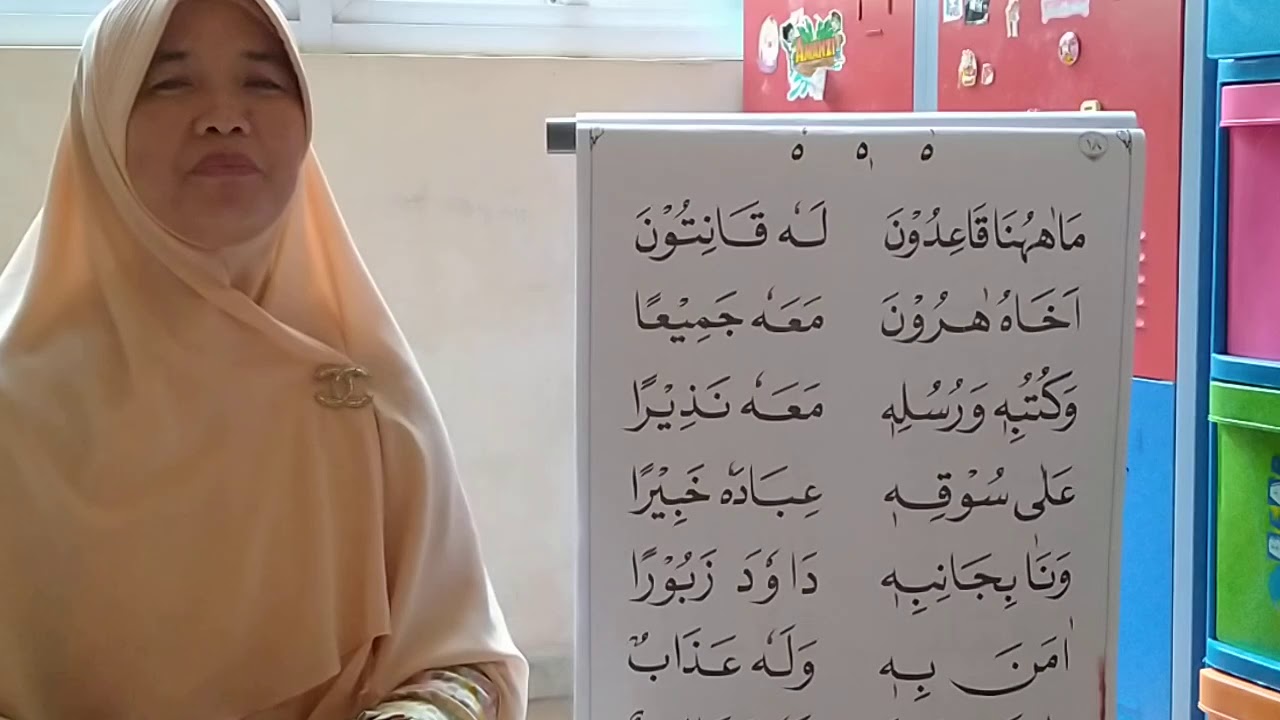 ١٨
هٗ هٖ هٰ
مَاهٰهُنَا قَاعِدُوْنَ لَهٗ قَانِتُوْنَ
اَخَاهُ هٰرُوْنَ مَعَهٗ جَمِيْعًا
وَكُتُبِهٖ وَرُسُلِهٖ مَعَهٗ نَذِيْرًا
عَلٰى سُوْقِهٖ عِبَادَهٗ خَبِيْرًا
وَنَاٰ بِجَانِبِهٖ دَاوٗدَ زَبُوْرًا
اٰمَنَ بِهٖ وَلَهٗ عَذَابٌ